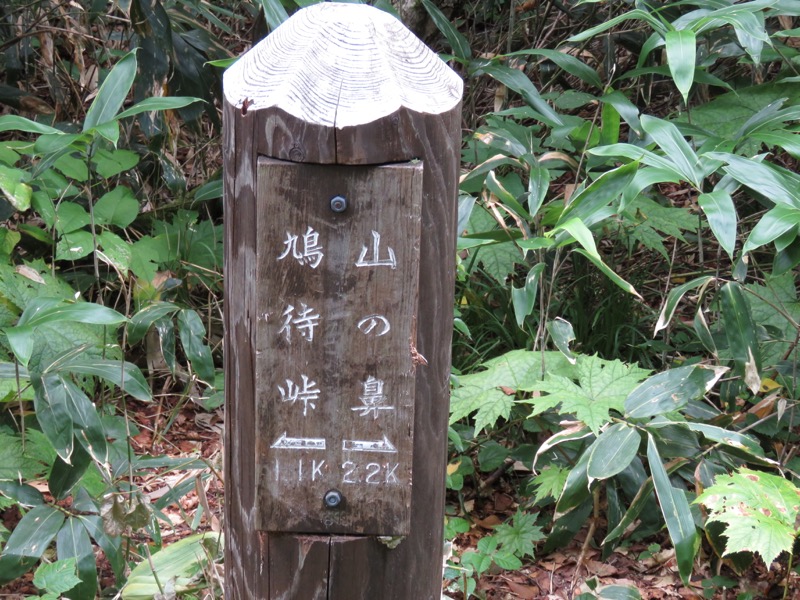 山の鼻
2.2K
鳩待峠
1.1K